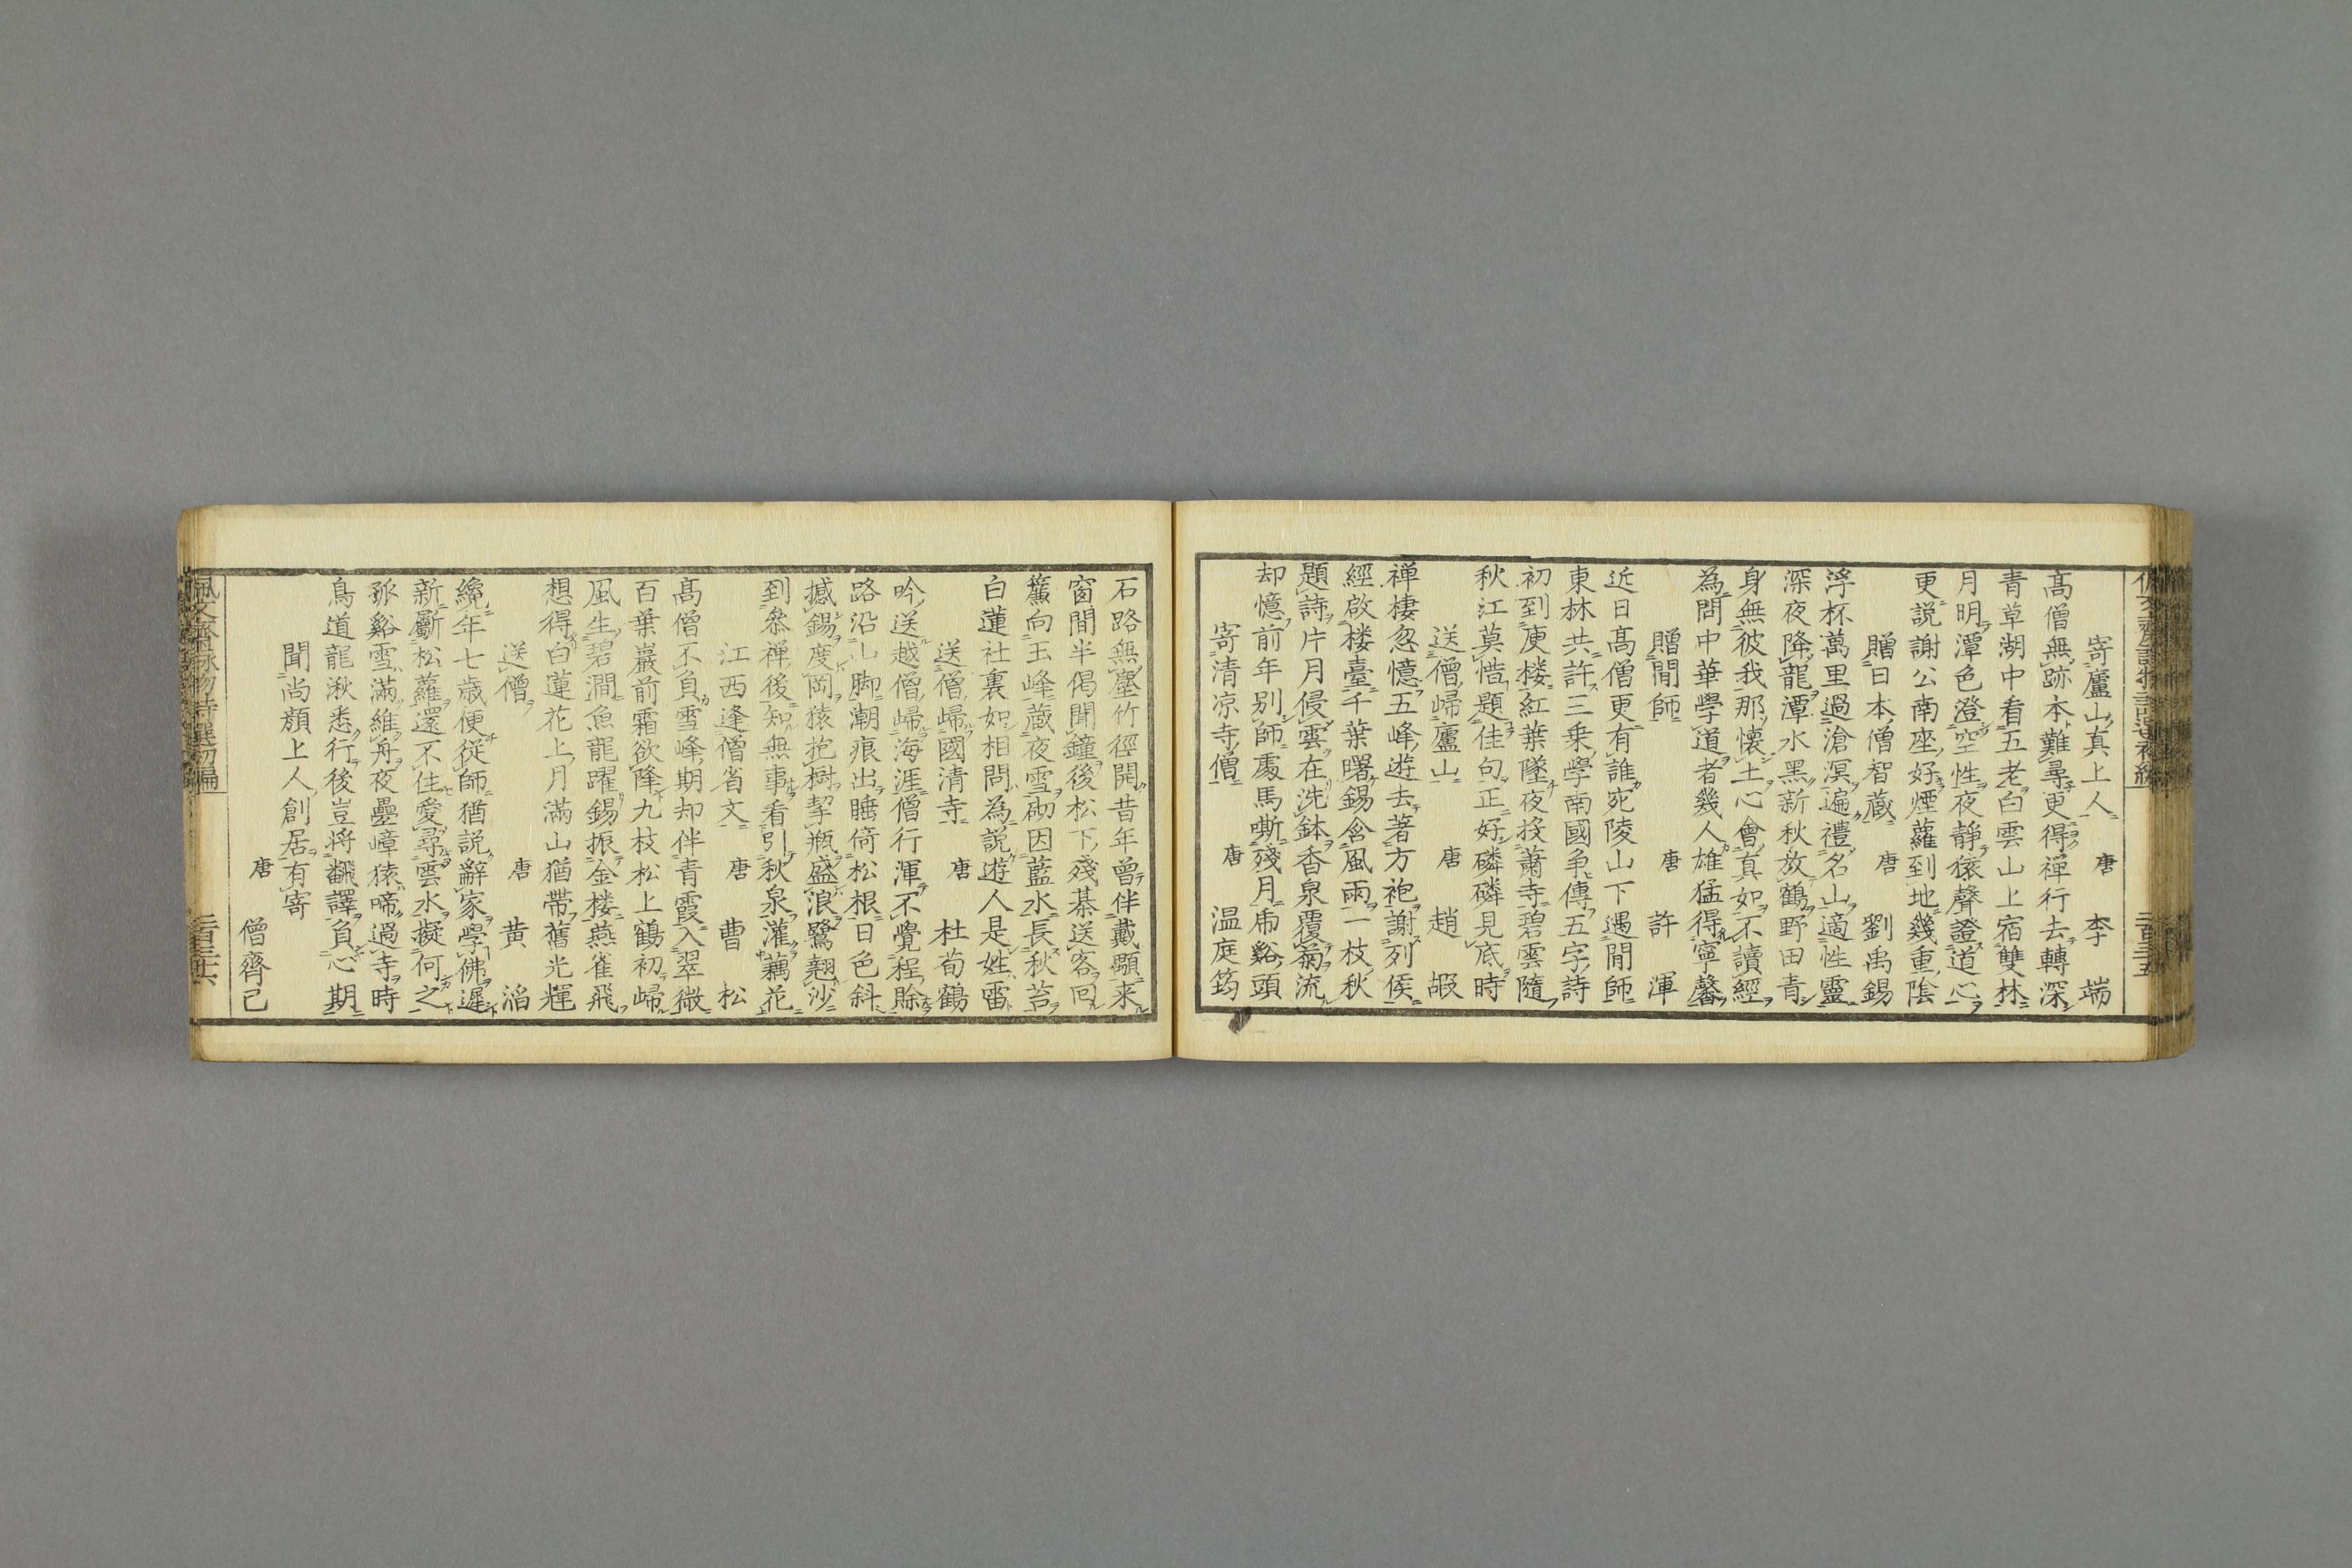 寄廬山真上人 唐 李端
高僧無跡本難尋更得禅行去轉深
青草湖中看五老白雲山上宿雙林
月明潭色澄空性夜靜猿聲證道心
更説謝公南座好煙蘿到地幾重陰
贈日本僧智蔵 唐 劉禹錫
浮杯萬里過滄溟遍禮名山適性靈
深夜降龍潭水黒新秋放鶴野田青
身無彼我那懐土心會真如不讀經
為問中華學道者幾人雄猛得寧馨
贈閒師 唐 許渾
近日高僧更有誰宛陵山下遇閒師
東林共許三乗學南國争傳五字詩
初到庾楼紅葉墜夜投蕭寺碧雲随
秋江莫惜題佳句正好磷磷見底時
送僧歸廬山 唐 趙嘏
禅棲忽憶五峰遊去著方袍謝列侯
經啟楼臺千葉曙錫含風雨一枝秋
題詩片月侵雲在洗鉢香泉覆菊流
却憶前年别師處馬嘶殘月虎谿頭
寄清凉寺僧 唐 温庭筠
石路無塵竹徑開昔年曾伴戴顒来
窗間半偈聞鐘後松下殘棊送客回
簾向玉峰蔵夜雪砌因藍水長秋苔
白蓮社裏如相問為説遊人是姓雷
送僧歸國清寺 唐 杜荀鶴
吟送越僧歸海涯僧行渾不覺程賒
路沿山脚潮痕出睡倚松根日色斜
撼錫度岡猿抱樹挈瓶盛浪鷺翹沙
到叅禅後知無事看引秋泉灌藕花
江西逢僧省文 唐 曹松
高僧不負雪峰期却伴青霞入翠微
百葉巖前霜欲降九枝松上鶴初歸
風生碧澗魚龍躍錫振金楼燕雀飛
想得白蓮花上月滿山猶帶舊光輝
送僧 唐 黄滔
纔年七歳便従師猶説辭家學佛遲
新斸松蘿還不住愛尋雲水擬何之
孤谿雪滿維舟夜疊嶂猿啼過寺時
鳥道龍湫悉行後豈将飜譯負心期
聞尚顔上人創居有寄
唐 僧齊己
佩文齋詠物詩選初編 二百三十六